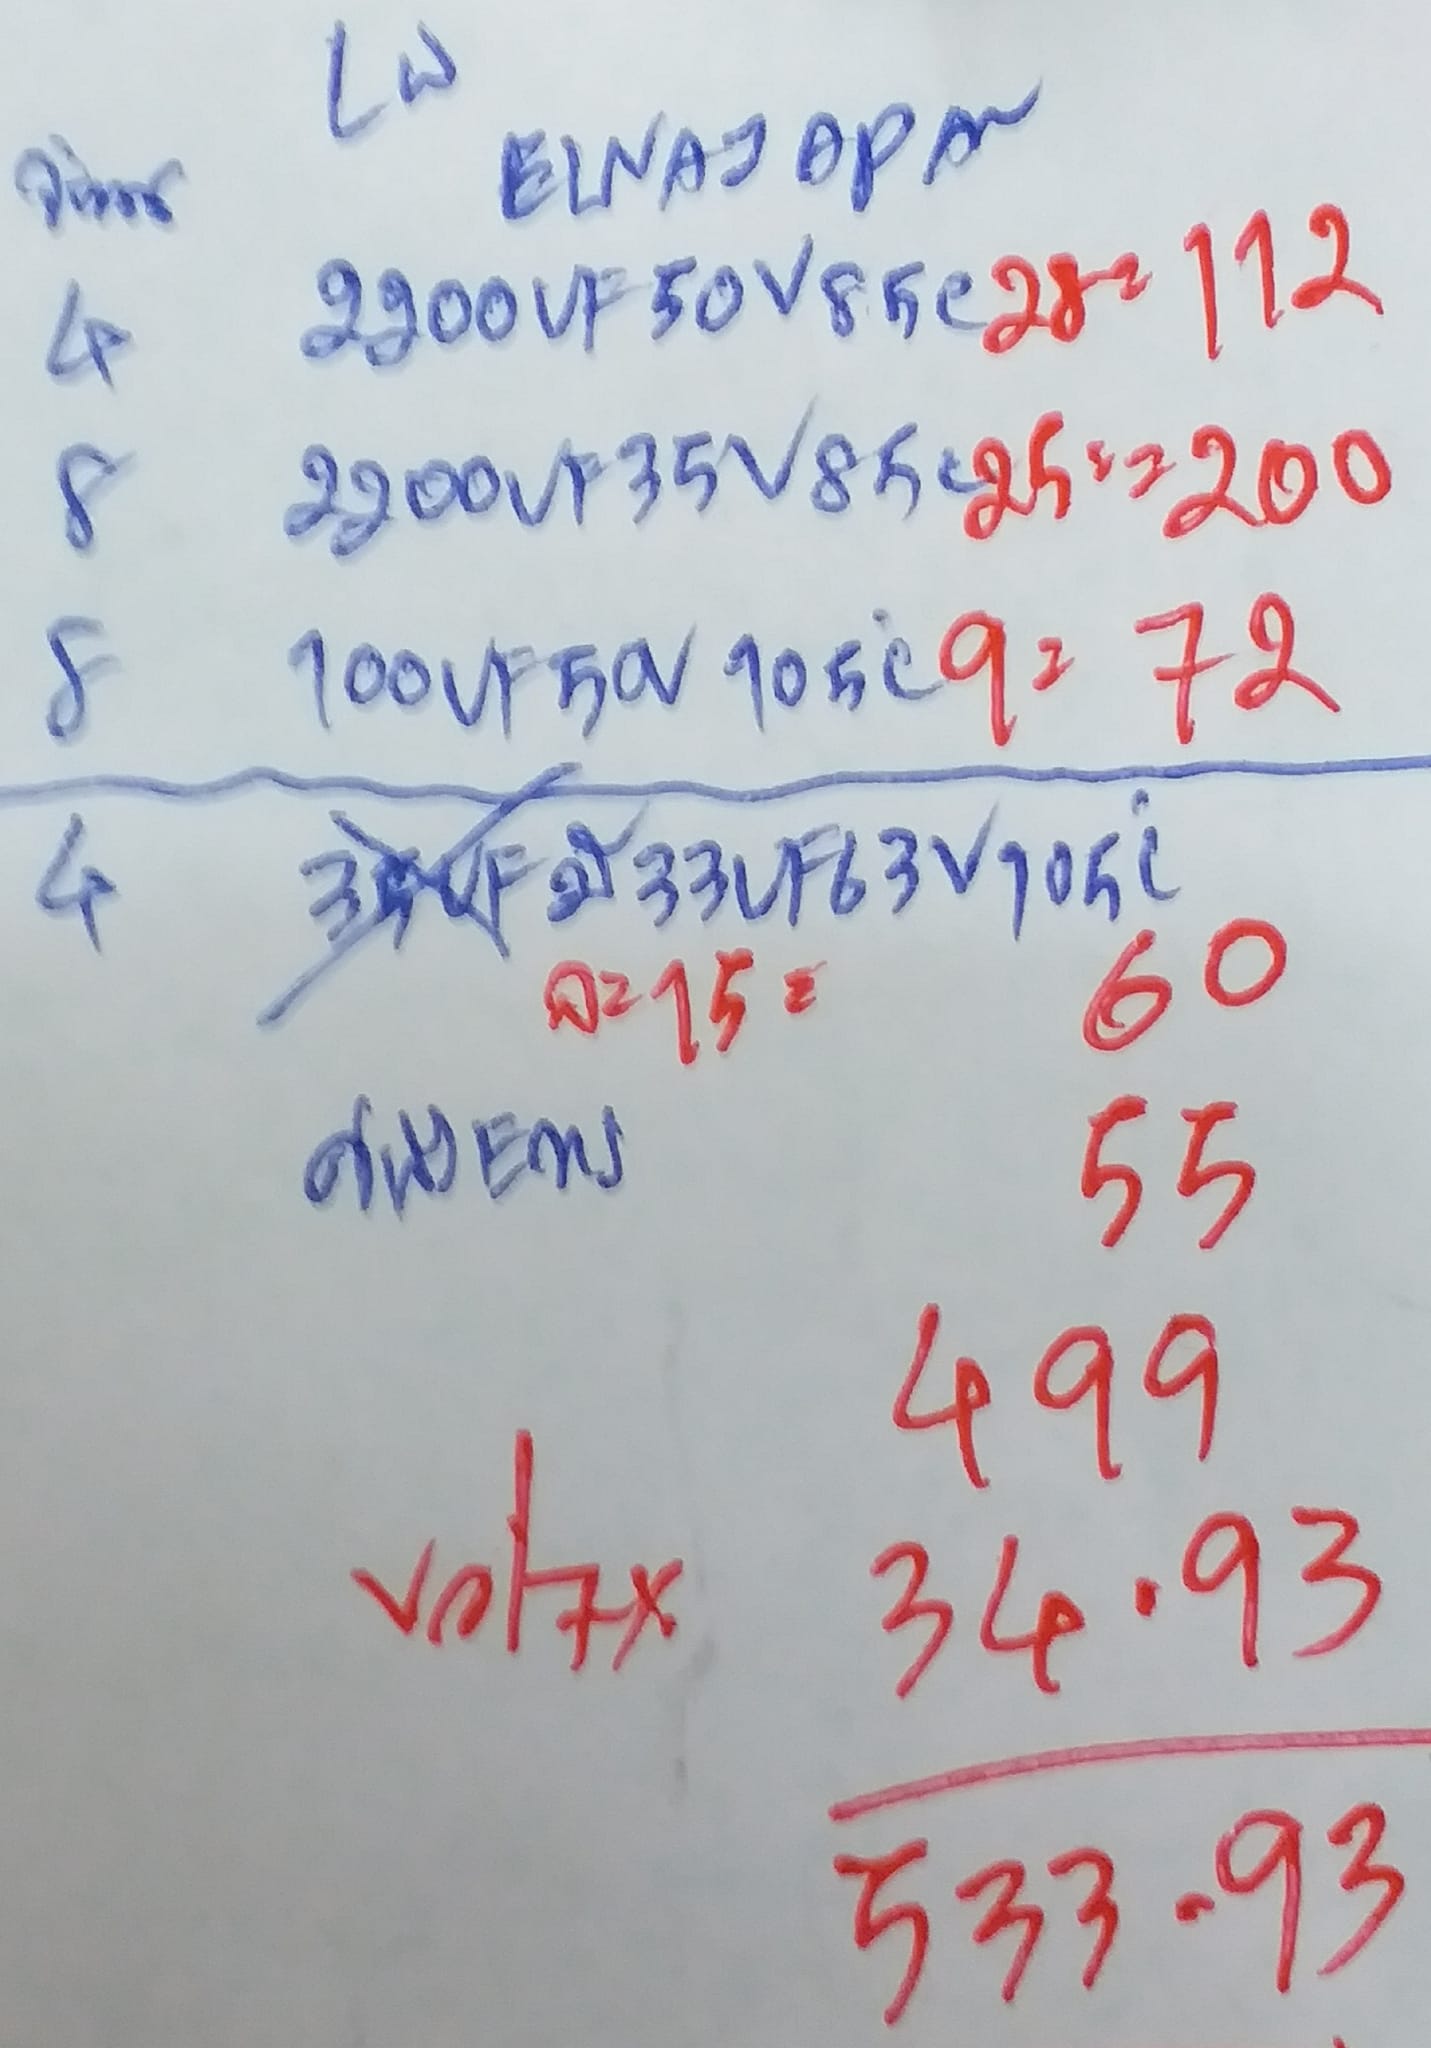 ELNA JAPAN
จำนวน
4 2200UF 50V 85c 28= 112
8 2200UF 35V 85c 25= 200
8 100UF 50V 105c 9= 72
4 มี 33UF 63V 105c
ละ 15= 60
ค่าส่ง EMS 55
499
vat 7% 34.93
533.93